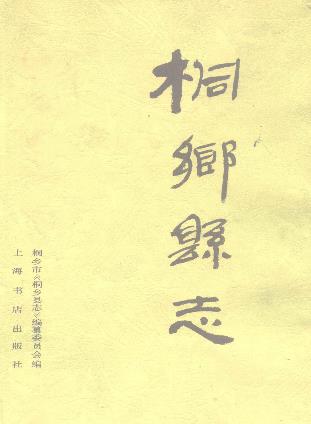 桐鄉縣志
桐乡市《桐乡县志》编纂委员会编
上海书店出版社